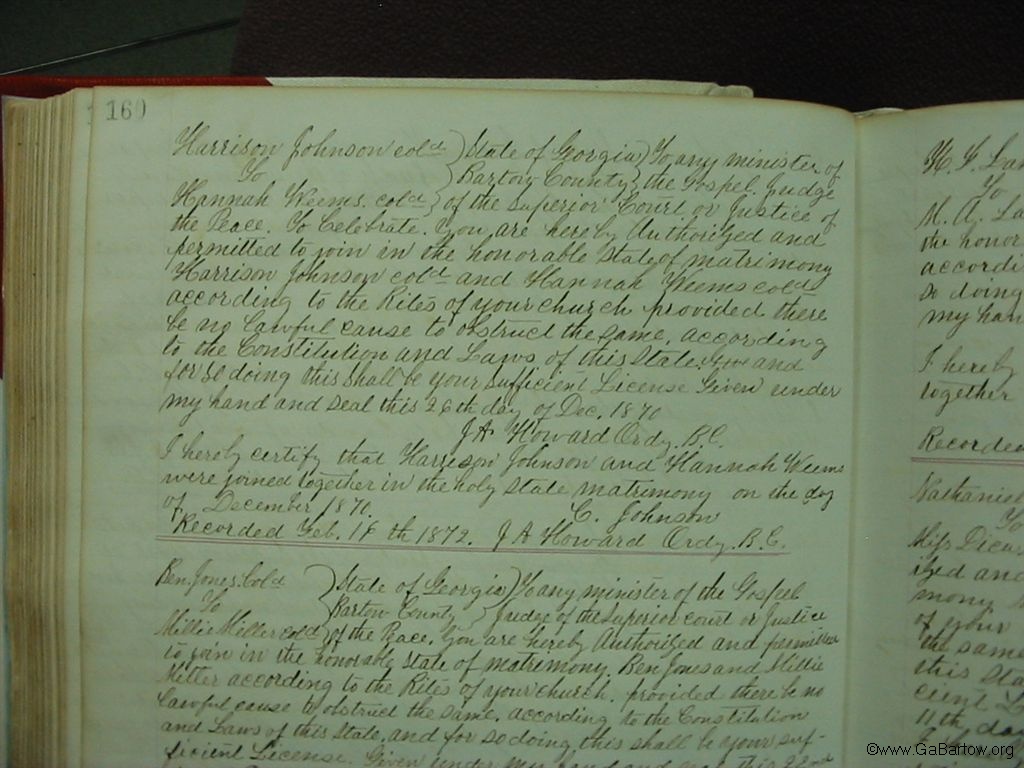 160
Harrison Johnson cold ) State of Georgia ) To any minister of
To ) Bartow County } the Gospel. Judge
Hannah Weems. cold } of the Superior Court or Justice of
the Peace. To Celebrate. You are hereby Authorized and
permitted to join in the honorable state of matrimony
Harrison Johnson cold and Hannah Weems cold
according to the Rites of your church provided there
be no Lawful cause to obstruct the same, according
to the Constitution and Laws of this State. and
for so doing this shall be your sufficient License Given under
my hand and seal this 26th day of Dec. 1870
J A Howard Ordy. B.C.
I hereby certify that Harrison Johnson and Hannah Weems
were joined together in the holy state matrimony on the day
of December 1870.
C. Johnson
Recorded Feb. th 1872. J A Howard Ordy. B.C.
Ben Jones. Cold ) State of Georgia ) To any minister of the Gospel
To ) Bartow County } Judge of the Superior court or Justice
Millie Miller cold } of the Peace, You are hereby Authorized and permitted
to join in the honorable state of matrimony. Ben Jones and Millie
Miller according to the Rites of your church. provided there be no
Lawful cause to obstruct the same. according to the Constitution
and Laws of this State, and for so doing this shall be your suf-
ficient License. Given under my hand and seal this 22nd
To
M. A. La
the honor
accordi
so doing
my han
I hereby
together
Recorded
Nathaniel
To
Miss
ized and
mony
of your
the same
this Sta
cient L
11th da
©www.GaBartow.org